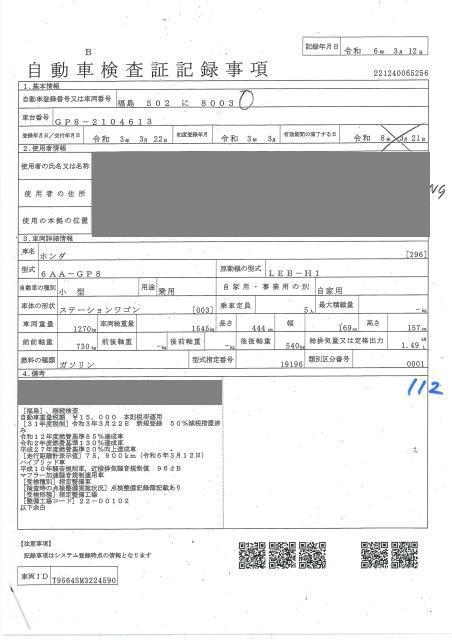 記録年月日 令和 6年 3月 12日
B
自動車検査証記録事項
221240065256
1.基本情報
自動車登録番号又は車両番号 福島 502 に 8003
車台番号 GP8-2104613
登録年月日/交付年月日 令和 3年 3月 22日 初度登録年月 令和 3年 3月 有効期間の満了する日 令和 8年 3月 21日
2.使用者情報
使用者の氏名又は名称
使用者の住所
使用の本拠の位置
3.車両詳細情報
車名 ホンダ [296]
型式 6AA-GP8 原動機の型式 LEB-H1
自動車の種別 小型 用途 乗用 自家用・事業用の別 自家用
車体の形状 ステーションワゴン [003] 乗車定員 5人 最大積載量 -kg
車両重量 1270kg 車両総重量 1545kg 長さ 444cm 幅 169cm 高さ 157cm
前前軸重 730kg 前後軸重 -kg 後前軸重 -kg 後後軸重 540kg 総排気量又は定格出力 1.49 kW L
燃料の種類 ガソリン 型式指定番号 19196 類別区分番号 0001
4.備考
112
[福島],継続検査
自動車重量税額 ¥15,000 本則税率適用
[31年度税制]令和3年3月22日 新規登録 50%減税措置済
み
令和12年度燃費基準85%達成車
令和2年度燃費基準130%達成車
平成27年度燃費基準20%向上達成車
[走行距離計表示値]75,900km(令和6年3月12日)
ハイブリッド車
平成10年騒音規制車,近接排気騒音規制値 96dB
マフラー加速騒音規制適用車
[受検種別]指定整備車
[検査時の点検整備実施状況]点検整備記録簿記載あり
[受検形態]指定整備工場
[整備工場コード]22-00102
以下余白
[注意事項]
記録事項はシステム登録時点の情報となります
車両ID T9564SM3224590